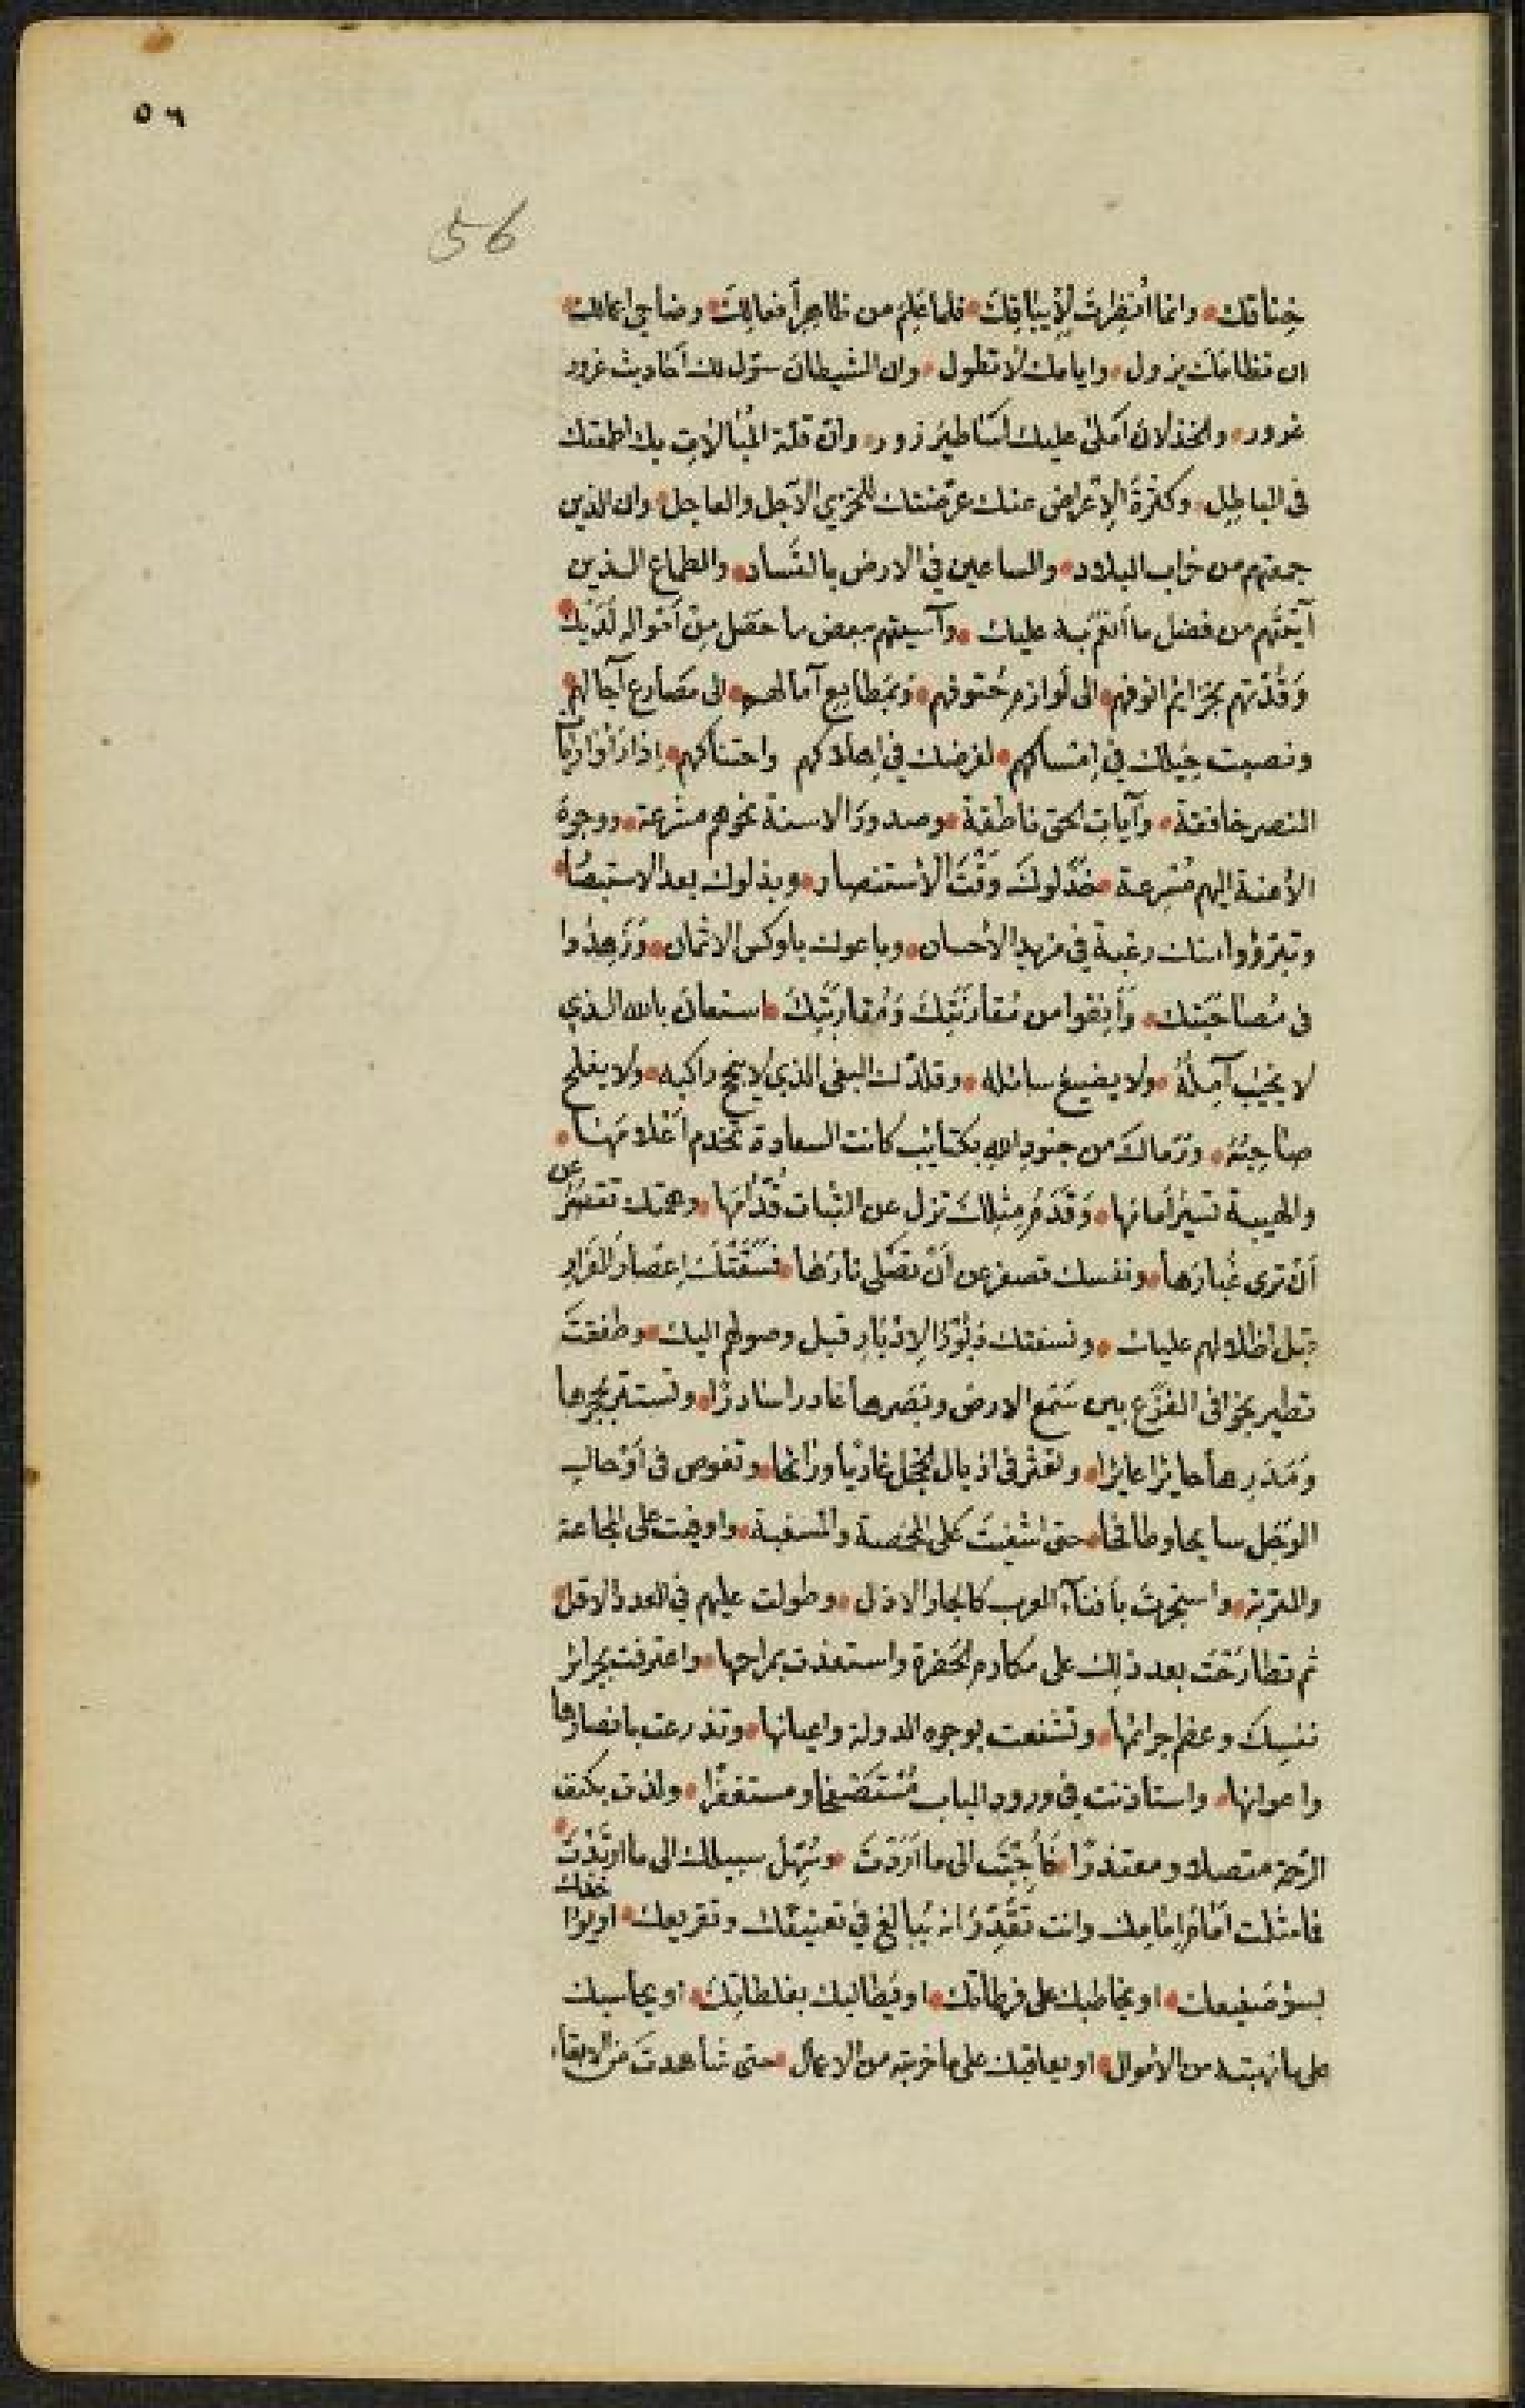 ٥٦
56
خناقك • وانما انظرت لإيباقك • فلما علم من ظاهر أفعالك • وضاحي اعمالك •
ان نظامك يزول • وايامك لا تطول • وان الشيطان سول لك أحاديث غرور
غرور • والخذلان أملى عليك اساطير زور • وان قلة المبالاة بك اطمعتك
في الباطل • وكثرة الإعراض عنك عرضتك للخزي الآجل والعاجل • وان الذين
جمعتهم من خراب البلاد • والساعين في الارض بالفساد • والطماع الذين
آتيتهم من فضل ما أنعم به عليك • وآسيتهم ببعض ما حصل من أمواله لديك •
وقدتهم بخزايم انوفهم • الى لوازم حتوفهم • وبمطايع آمالهم • الى مصارع آجالهم •
ونصبت حيلك في امساكهم • لغرضك في إهلاكهم واحتناكهم • إذا رأوا رايات
النصر خافقة • وآيات الحق ناطقة • وصدور الاسنة نحوهم مشرعة • ووجوه
الأعنة اليهم مسرعة • خذلوك وقت الأستنصار • وبذلوك بعد الاستبصار •
وتبرؤوا منك رغبة في مزيد الأحسان • وباعوك باوكس الاثمان • وزهدوا
في مصاحبتك • وأنفوا من مقارنتك ومقاربتك • استعان بالله الذي
لا يخيب آمله • ولا يضيع سائله • وقلدك البغي الذي لا ينجح راكبه • ولا يفلح
صاحبه • ورماك من جنود الله بكتايب كانت السعادة تخدم اعلامها •
والهيبة تسير أمامها • وقدم مثلك تزل عن الثبات قدامها • وهمتك تقصر عن
أن ترى غبارها • ونفسك تصغر عن أن تصلى نارها • فسفتك إعصار الفرار
قبل اظلالهم عليك • ونسفتك دبور الإدبار قبل وصولهم اليك • وطفقت
تطير بخوافي الفزع بين سمع الارض وبصرها غادرا سادرًا • وتستتر بحجرها
ومدرها حايرًا عايرًا • وتعثر في اذيال الخجل غاديًا ورائحا • وتغوص في أوحال
الوجل سابحا وطافحا • حتى اشفيت على المخمصة والمسغبة • واوفيت على المجاعة
والمتربة • واستجرت بأفناء العرب كالجار الاذل • وطولت عليهم في العدد الاقل •
ثم تطارحت بعد ذلك على مكارم الحضرة واستعذت بمراحمها • واعترفت بجرائر
نفسك وعظم جرائمها • وتشفعت بوجوه الدولة واعيانها • وتذرعت بانصارها
واعوانها • واستأذنت في ورود الباب مستصفحا ومستغفرًا • ولذت بكنف
الرحمة متنصلا ومعتذرًا • فأجبت الى ما اردت • وسهل سبيلك الى ما ارتدت •
فامثلت امام امامك وانت تقدر انه يبالغ في تعنيفك وتقريعك • او يؤاخذك
بسؤ صنيعك • او يخاطبك على فرطاتك • او يطالبك بغلطاتك • او يحاسبك
على ما نهبته من الأموال • او يعاقبك على ما خربته من الاعمال • حتى شاهدت من الابقاء